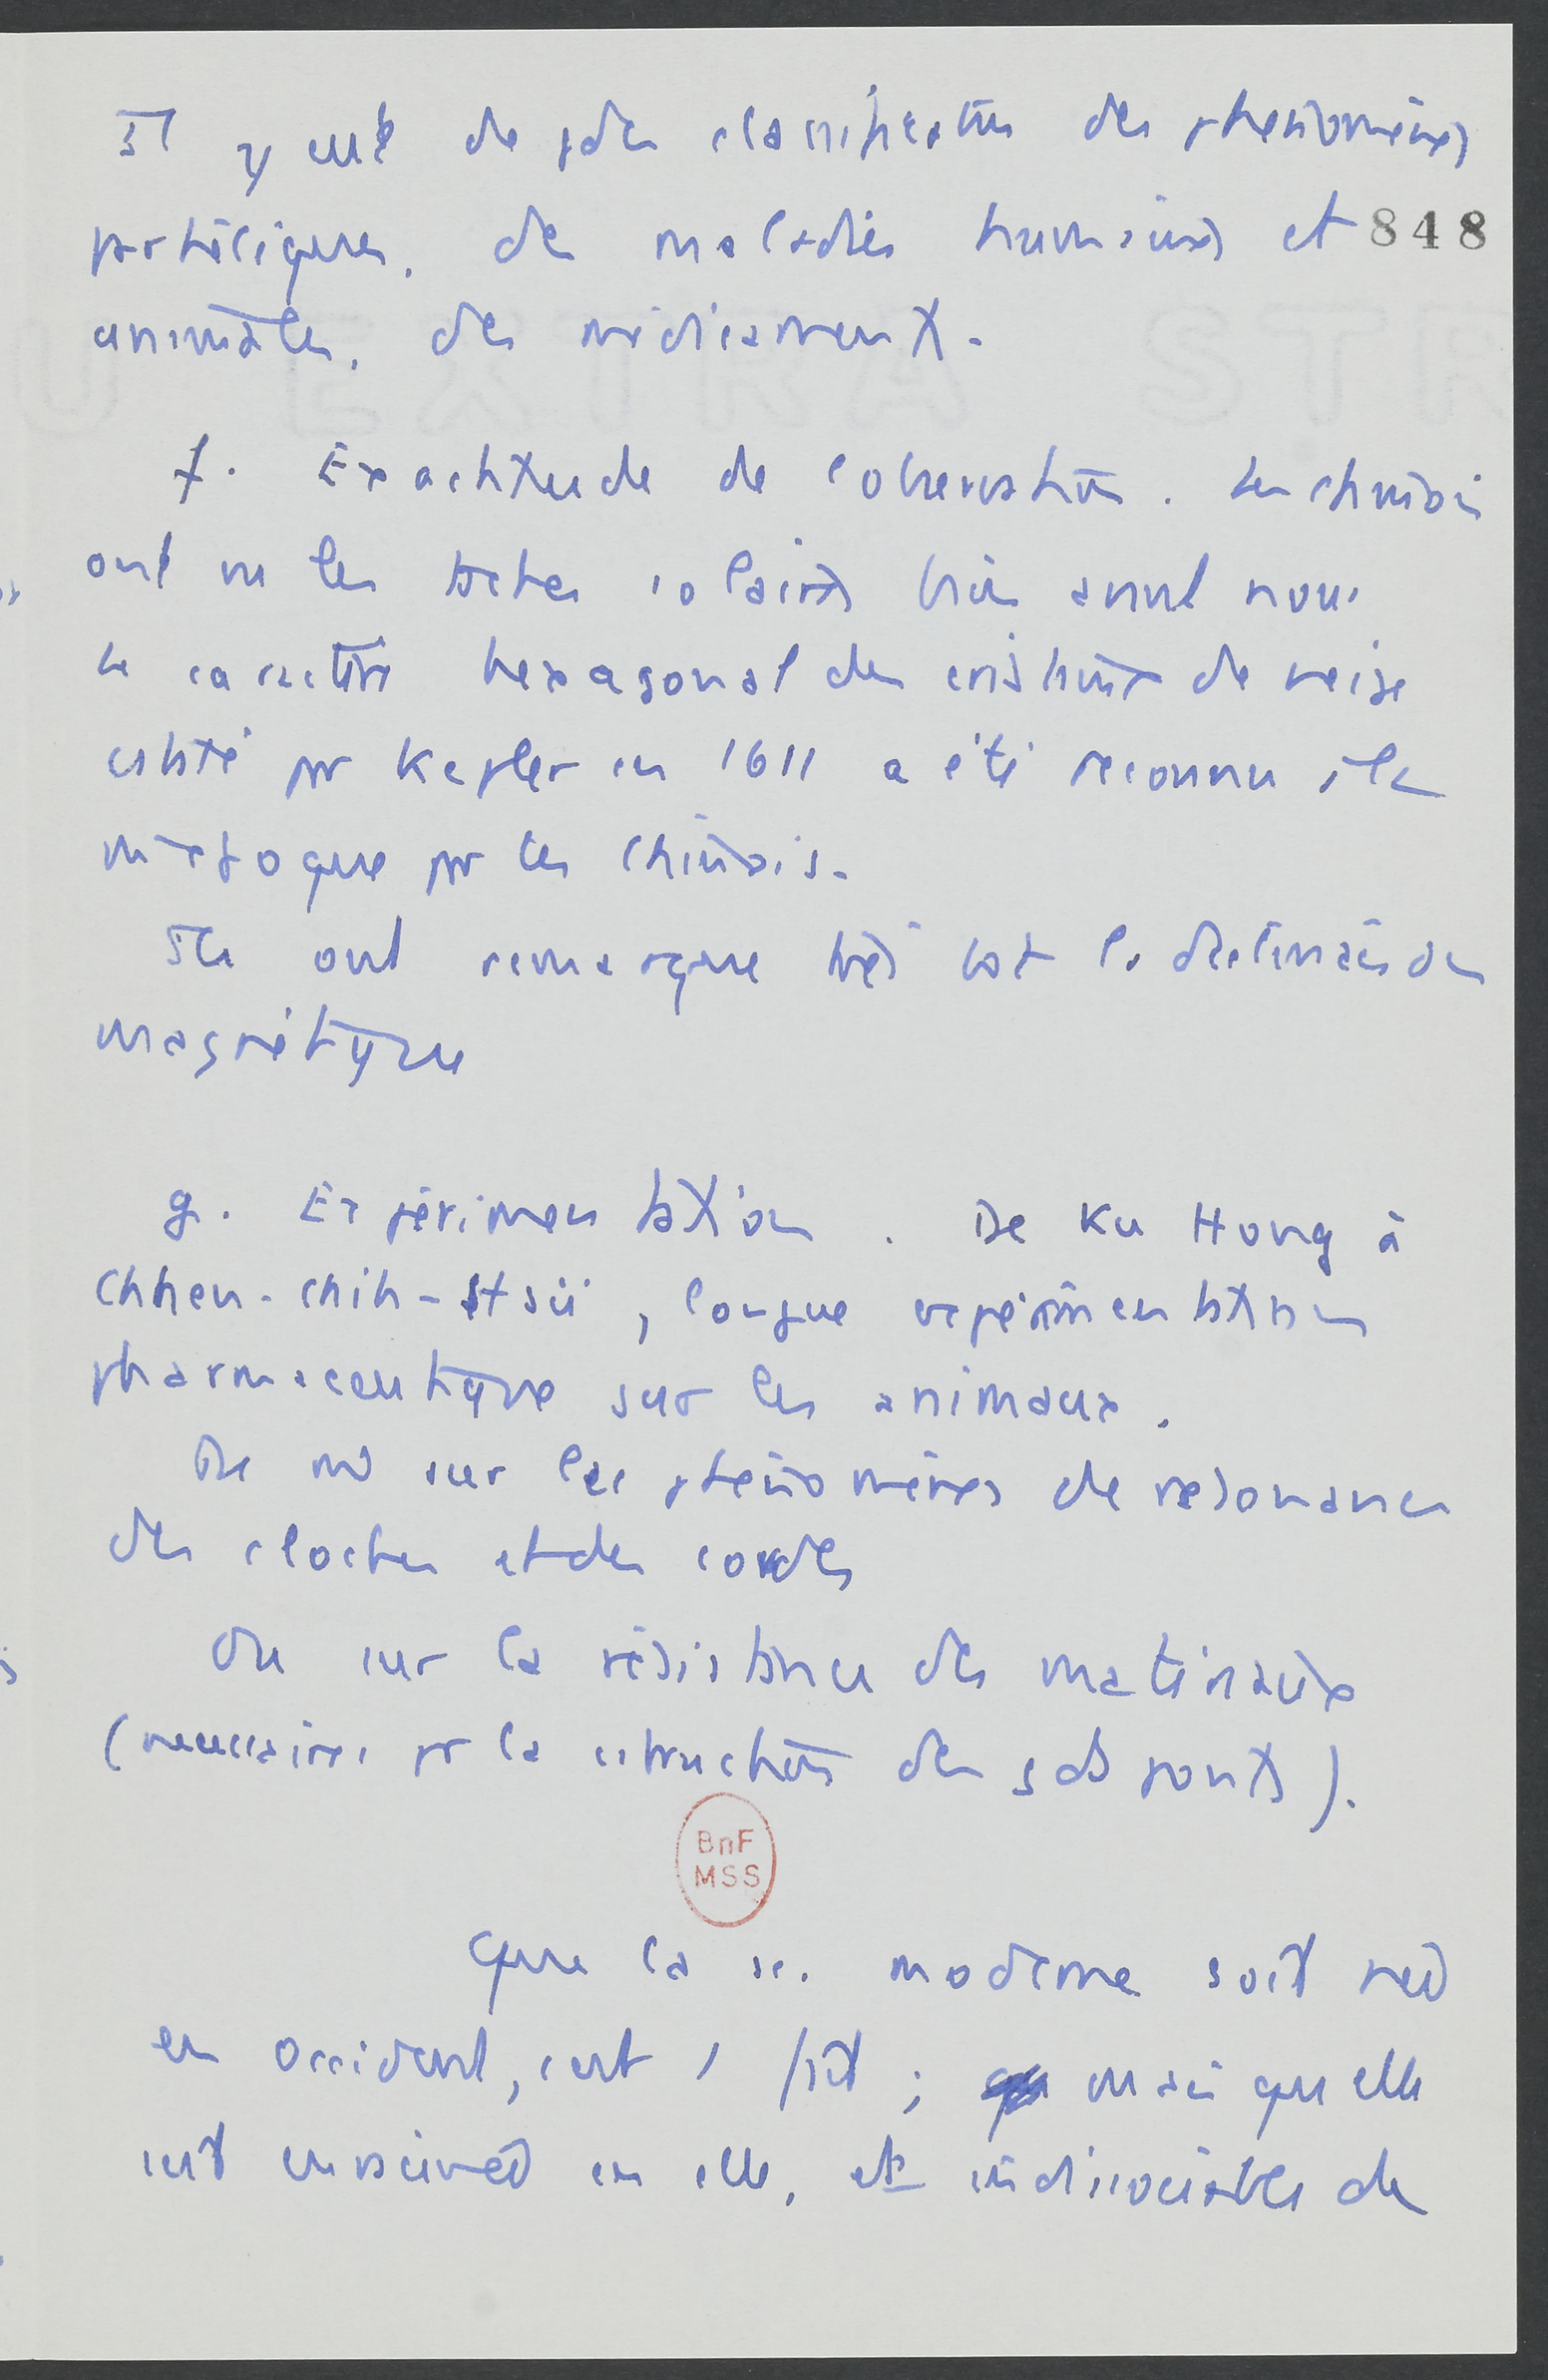 Il y eut de gdes classifications des phénomènes
patholiques, des maladies humaines et 848
animales, des médicaments.
f. Exactitude de l'observation. Les chinois
ont vu les taches solaires bien avant nous
le caractère hexagonal des cristaux de neige
csté pr Kepler en 1611 a été reconnu à la
m époque pr les Chinois.
Ils ont remarque très tot la declinaison
magnétique
g. Expérimentation. De Ku Hong à
Chhen-chih-Hsü, longue expérimentation
pharmaceutique sur les animaux.
De m sur les phénomènes de resonance
des cloches et des cordes
Ou sur la résistance des materiaux
(necessaires pr la cstruction des gds ponts).
BnF
MSS
Que la sc. moderne soit née
en occident, c'est 1 fait ; mais qu'elle
soit enracinée en elle, et indissociable de